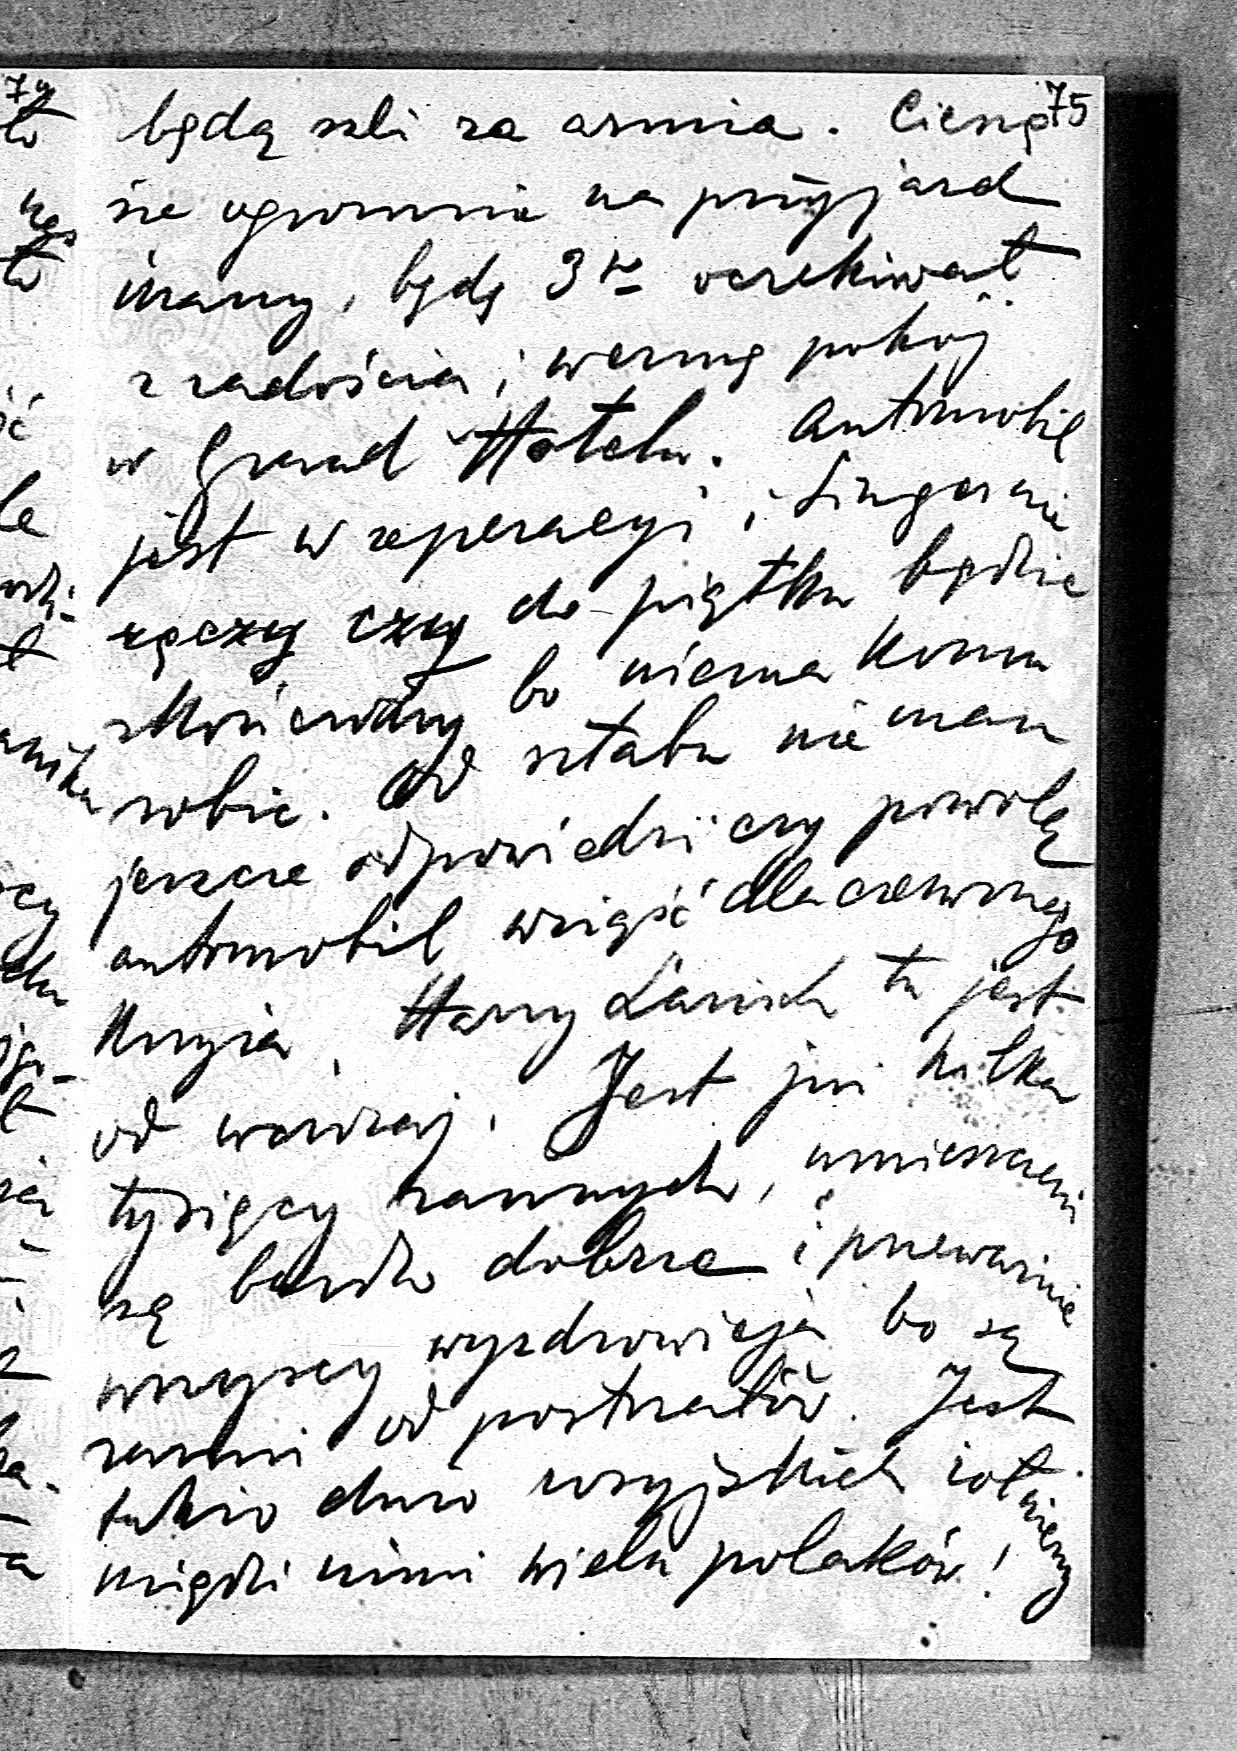 75
będą szli za armia. Cieszę
sie ogromnie na przyjazd
mamy, będę 3go oczekiwał
z radościa i wezmę pokoj
w Grand Hotelu. Automobil
jest w reperacyi i Singer nie
ręczy czy do piątku będzie
skończony bo niema komu
robic. Od sztabu nie mam
jeszcze odpowiedzi czy powolą
automobil wziąść dla czerwonego
Krzyża. Harry Larisch tu jest
od wczoraj. Jest juz kilka
tysięcy rannych, umieszczeni
są bardzo dobrze i przeważnie
wszyscy wyzdrowieja bo są
ranni od postrzałów. Jest
takio duzo rosyjskich zołnierzy
między nimi wielu polaków!